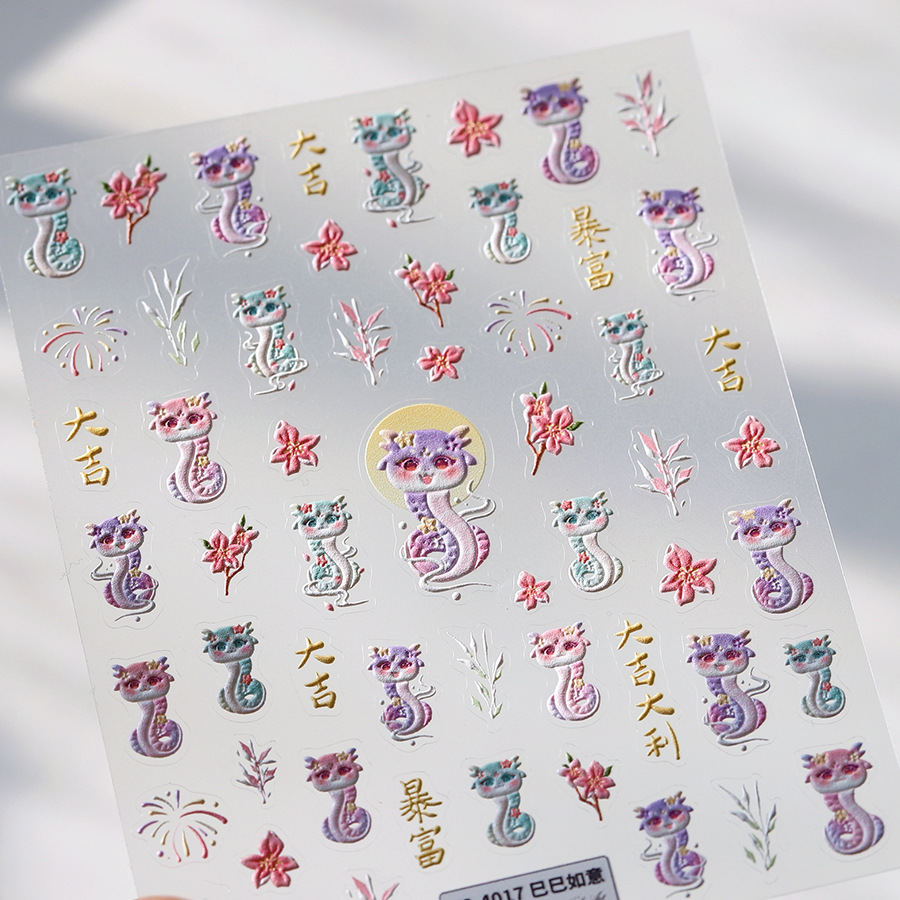 大吉
暴富
大吉
大吉
大吉
大吉大利
暴富
4017 巳巳如意